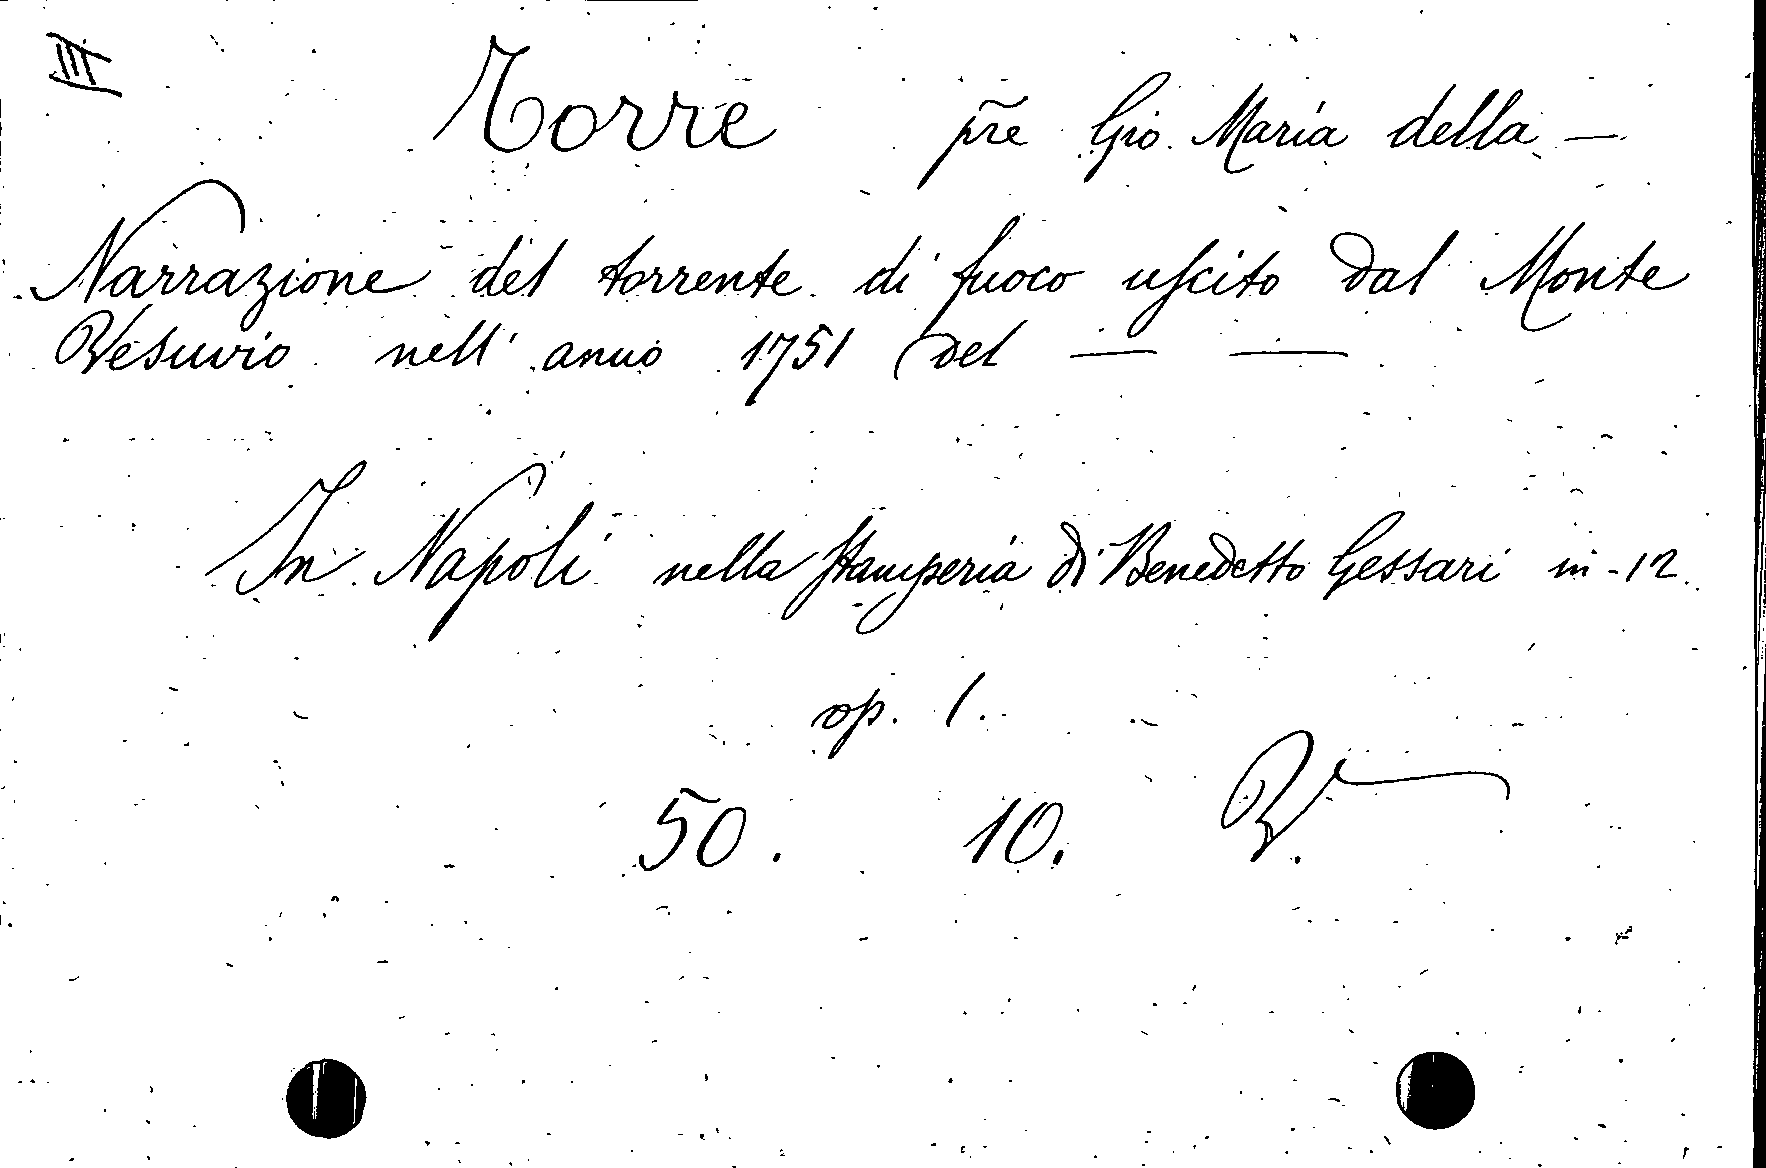 III
Torre pr̃e Gio. Maria della —
Narrazione del torrente di fuoco uſcito dal Monte
Vesuvio nell' anno 1751 del — —
In Napoli nella ſtamperia di Benedetto Gessari in-12.
op. 1.
50. 10. V.